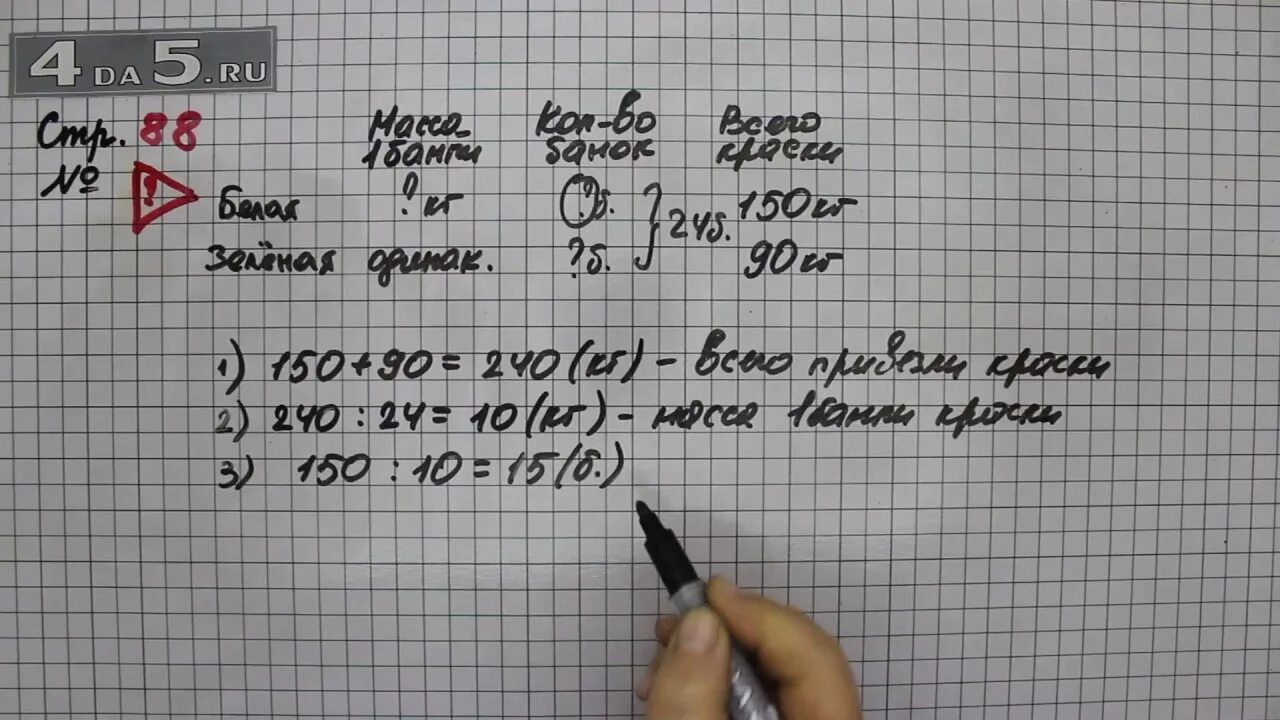 4DA5.RU
Стр. 88
№ !
Масса 1банки Кол-во банок Всего краски
Белая ? кг ?б. 150кг
} 24б.
Зелёная одинак. ?б. 90кг
1) 150+90 = 240 (кг) - всего привезли краски
2) 240 : 24 = 10 (кг) - масса 1банки краски
3) 150 : 10 = 15 (б.)